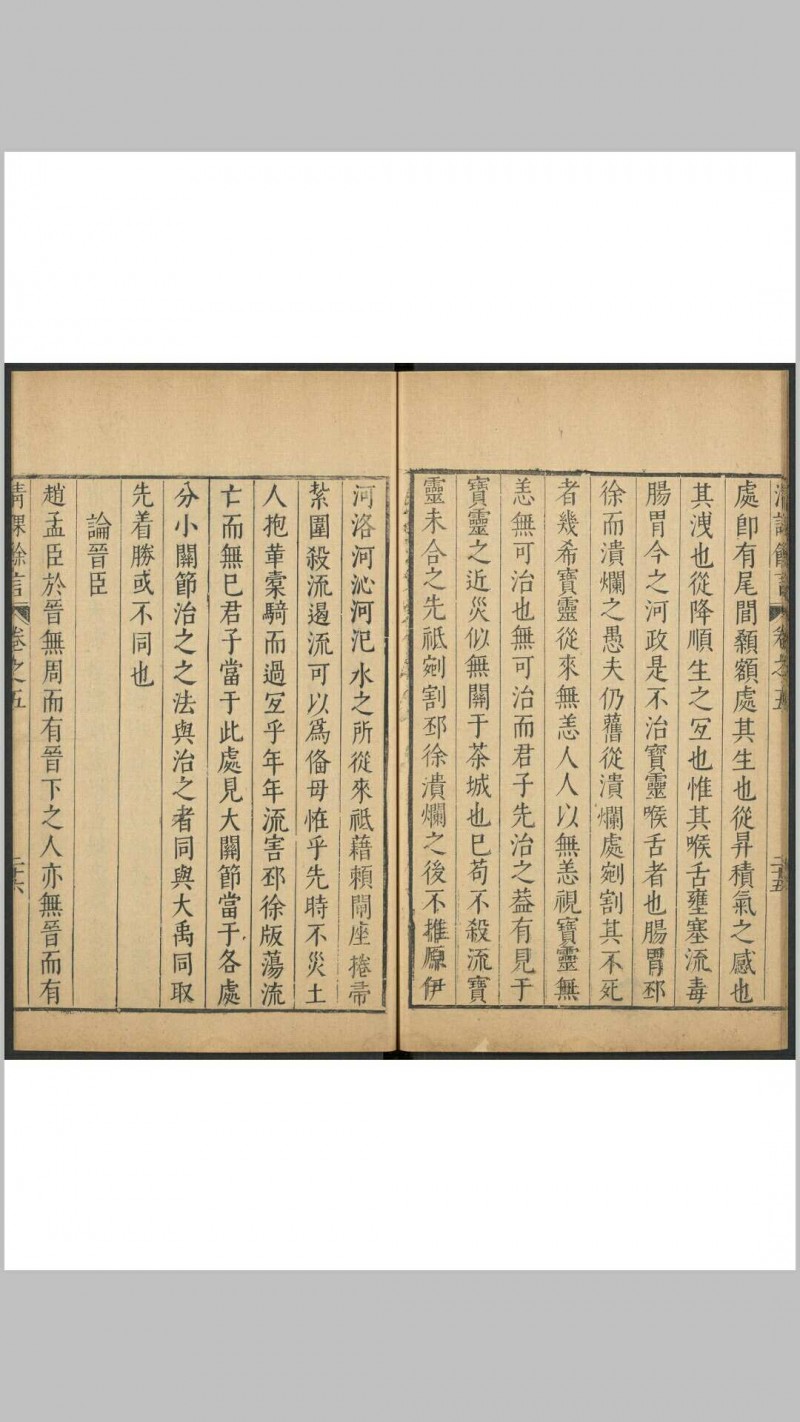 清課餘言 卷之五 二十五
處卽有尾閭顙額處其生也從昇積氣之感也
其洩也從降順生之宐也惟其喉舌壅塞流毒
腸胃今之河政是不治寶靈喉舌者也腸胃邳
徐而潰爛之愚夫仍舊從潰爛處剜割其不死
者幾希寶靈從來無恙人人以無恙視寶靈無
恙無可治也無可治而君子先治之葢有見于
寶靈之近災似無關于茶城也巳苟不殺流寶
靈未合之先祇剜割邳徐潰爛之後不推原伊
河洛河沁河汜水之所從來祇藉頼閘座捲帚
紮圍殺流遏流可以爲俻毋恠乎先時不災土
人抱葦槖騎而過宐乎年年流害邳徐版蕩流
亡而無巳君子當于此處見大關節當于各處
分小關節治之之法與治之者同與大禹同取
先着勝或不同也
論晉臣
趙孟臣於晉無周而有晉下之人亦無晉而有
清課餘言 卷之五 二十六